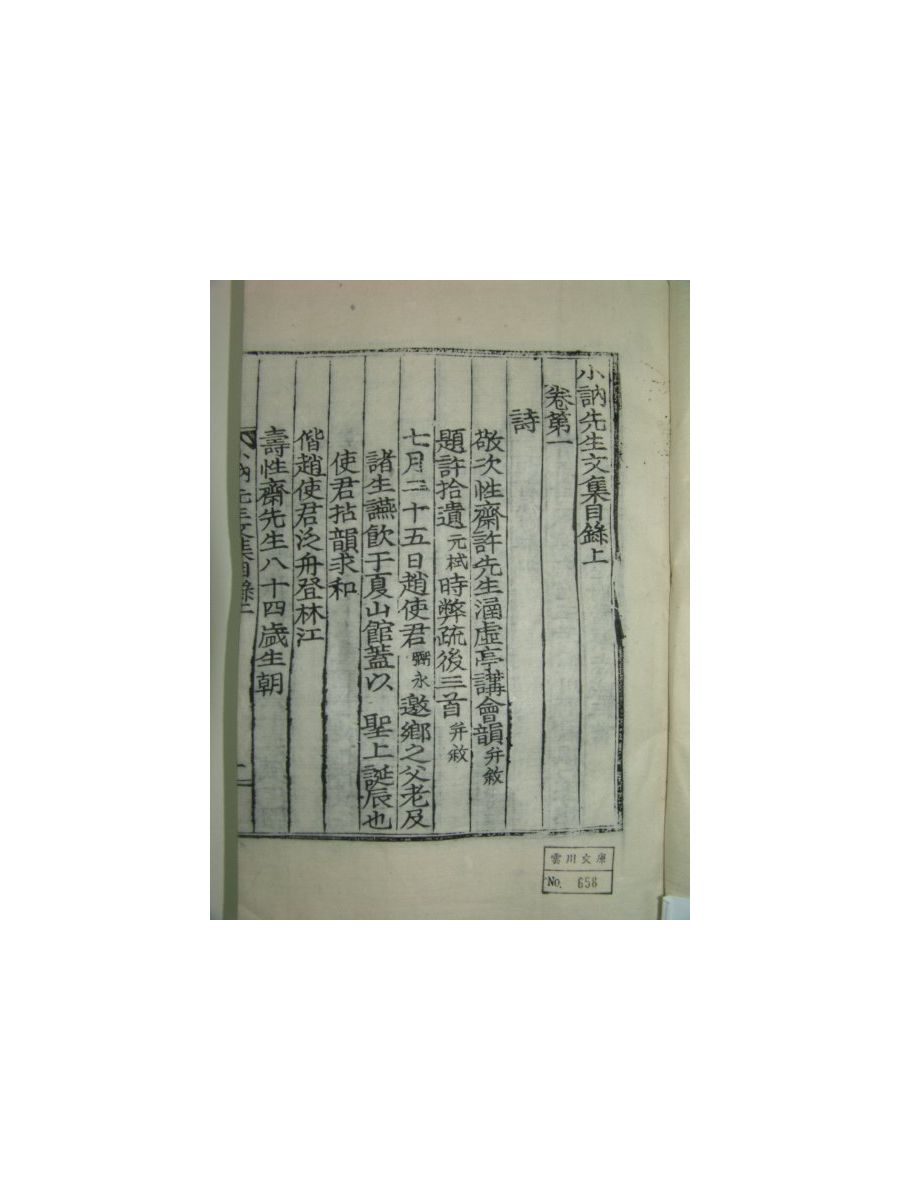 小訥先生文集目錄上
卷第一
詩
敬次性齋許先生涵虛亭講會韻 并敘
題許拾遺 元栻 時弊疏後三首 并敘
七月二十五日趙使君 弼永 邀鄉之父老及
諸生讌飮于夏山館蓋以 聖上誕辰也
使君拈韻求和
偕趙使君泛舟登林江
壽性齋先生八十四歲生朝
小訥先生文集目錄上
雲川文庫
No. 658